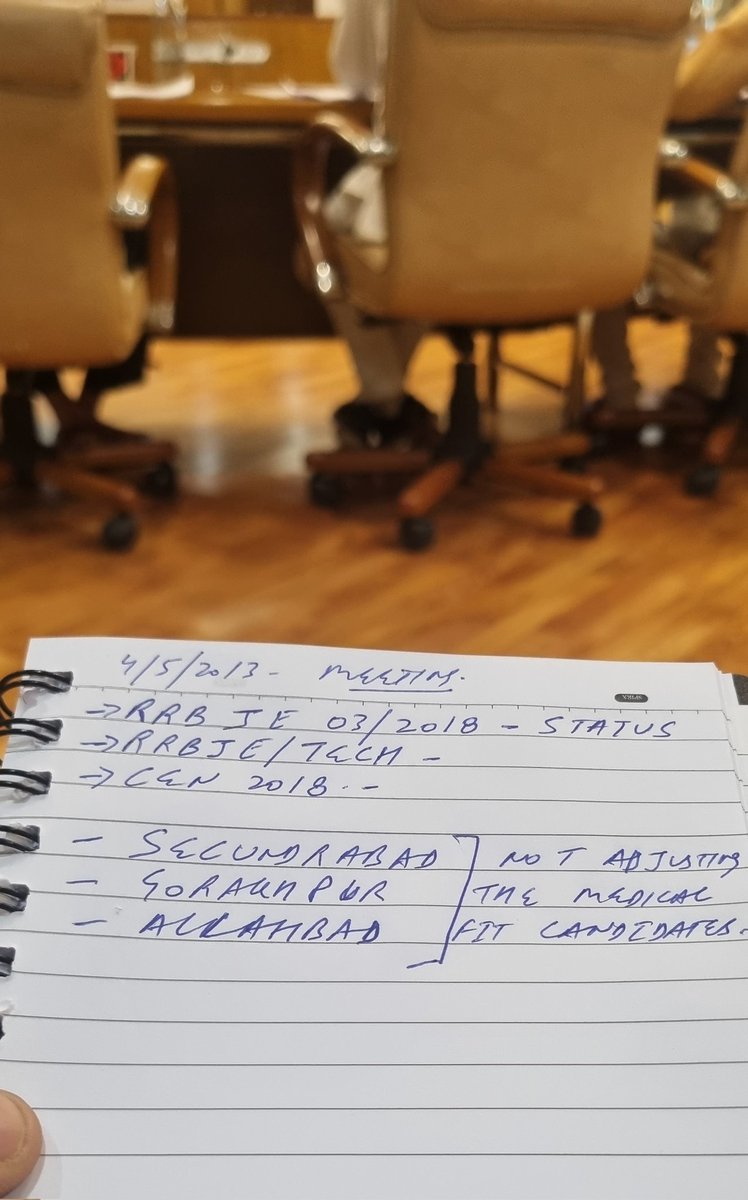 4/5/2013- MEETING.
→RRB JE 03/2018 - STATUS
→RRBJE/TECH -
→CEN 2018. -
- SECUNDRABAD ] NOT ADJUSTING
- GORAKHPUR THE MEDICAL
- ALLAHBAD FIT CANDIDATES.